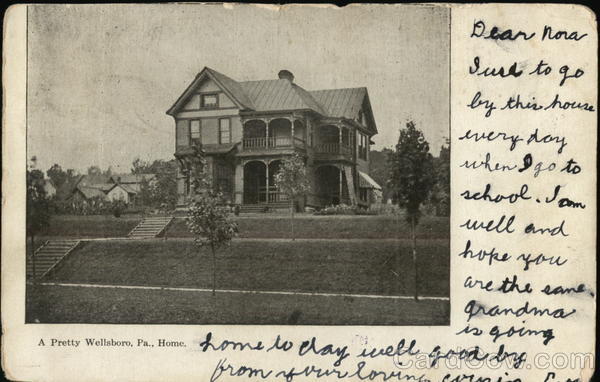 Dear Nora
I use to go
by this house
every day
when I go to
school. I am
well and
hope you
are the same.
grandma
is going
home to day well good by
from your loving cousin
A Pretty Wellsboro, Pa., Home.
CardCow.com